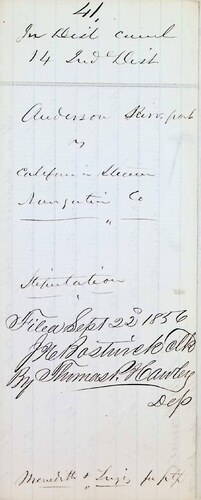 41,
In Dist Court
14 Jud Dist
Anderson
vs
California Steam
Navigation Co
"
Stipulation
Filed Sept 22d 1856
J H Bostwick Clk
By Thomas P. Hawley
Dep
Meredith &